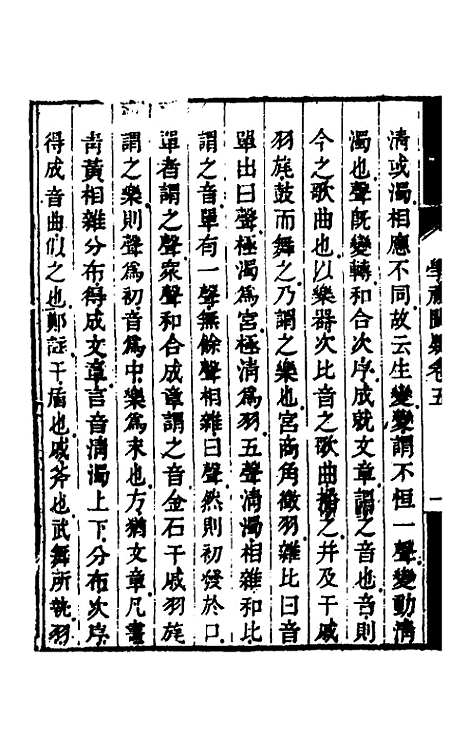 學禮闕疑卷五
一
清或濁相應不同故云生變變謂不恒一聲變動清
濁也聲既變轉和合次序成就文章謂之音也音則
今之歌曲也以樂器次比音之歌曲播之并及干戚
羽旄鼓而舞之乃謂之樂也宮商角徵羽雜比曰音
單出曰聲極濁為宮極清為羽五聲清濁相雜和比
謂之音單有一聲無餘聲相雜曰聲然則初發於口
單者謂之聲衆聲和合成章謂之音金石干戚羽旄
謂之樂則聲為初音為中樂為末也方猶文章凡畫
青黃相雜分布得成文章言音清濁上下分布次序
得成音曲似之也鄭註干盾也戚斧也武舞所執羽